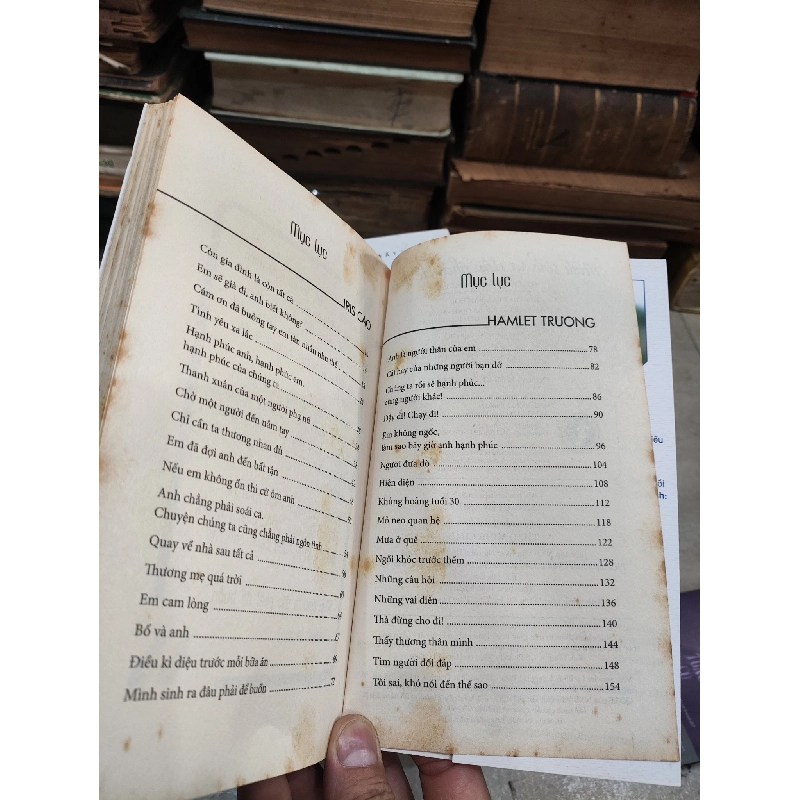 Mục lục
IRIS CAO
Còn gia đình là còn tất cả
Em sẽ già đi, anh biết không?
Cám ơn đã buông tay em
Tình yêu xa lắc
Hạnh phúc anh, hạnh phúc em,
hạnh phúc của chúng ta
Thanh xuân của một người phụ nữ
Chờ một người đến nắm tay
Chỉ cần ta thương nhau đủ
Em đã đợi anh đến bất tận
Nếu em không ổn thì cứ ôm anh
Anh chẳng phải soái ca,
Chuyện chúng ta cũng chẳng phải ngôn tình
Quay về nhà sau tất cả
Thương mẹ quá trời
Em cam lòng
Bố và anh
Điều kì diệu trước mỗi bữa ăn
Mình sinh ra đâu phải để buồn
Mục lục
HAMLET TRƯƠNG
Anh là người thân của em 78
Cái hay của những người bạn dở 82
Chúng ta rồi sẽ hạnh phúc...
cùng người khác! 86
Dậy đi! Chạy đi! 90
Em không ngốc,
làm sao bây giờ anh hạnh phúc 96
Người đưa đò 104
Hiện diện 108
Khủng hoảng tuổi 30 112
Mỏ neo quan hệ 118
Mưa ở quê 122
Ngồi khóc trước thềm 128
Những câu hỏi 132
Những vai diễn 136
Thà đừng cho đi! 140
Thấy thương thân mình 144
Tìm người đối đáp 148
Tôi sai, khó nói đến thế sao 154